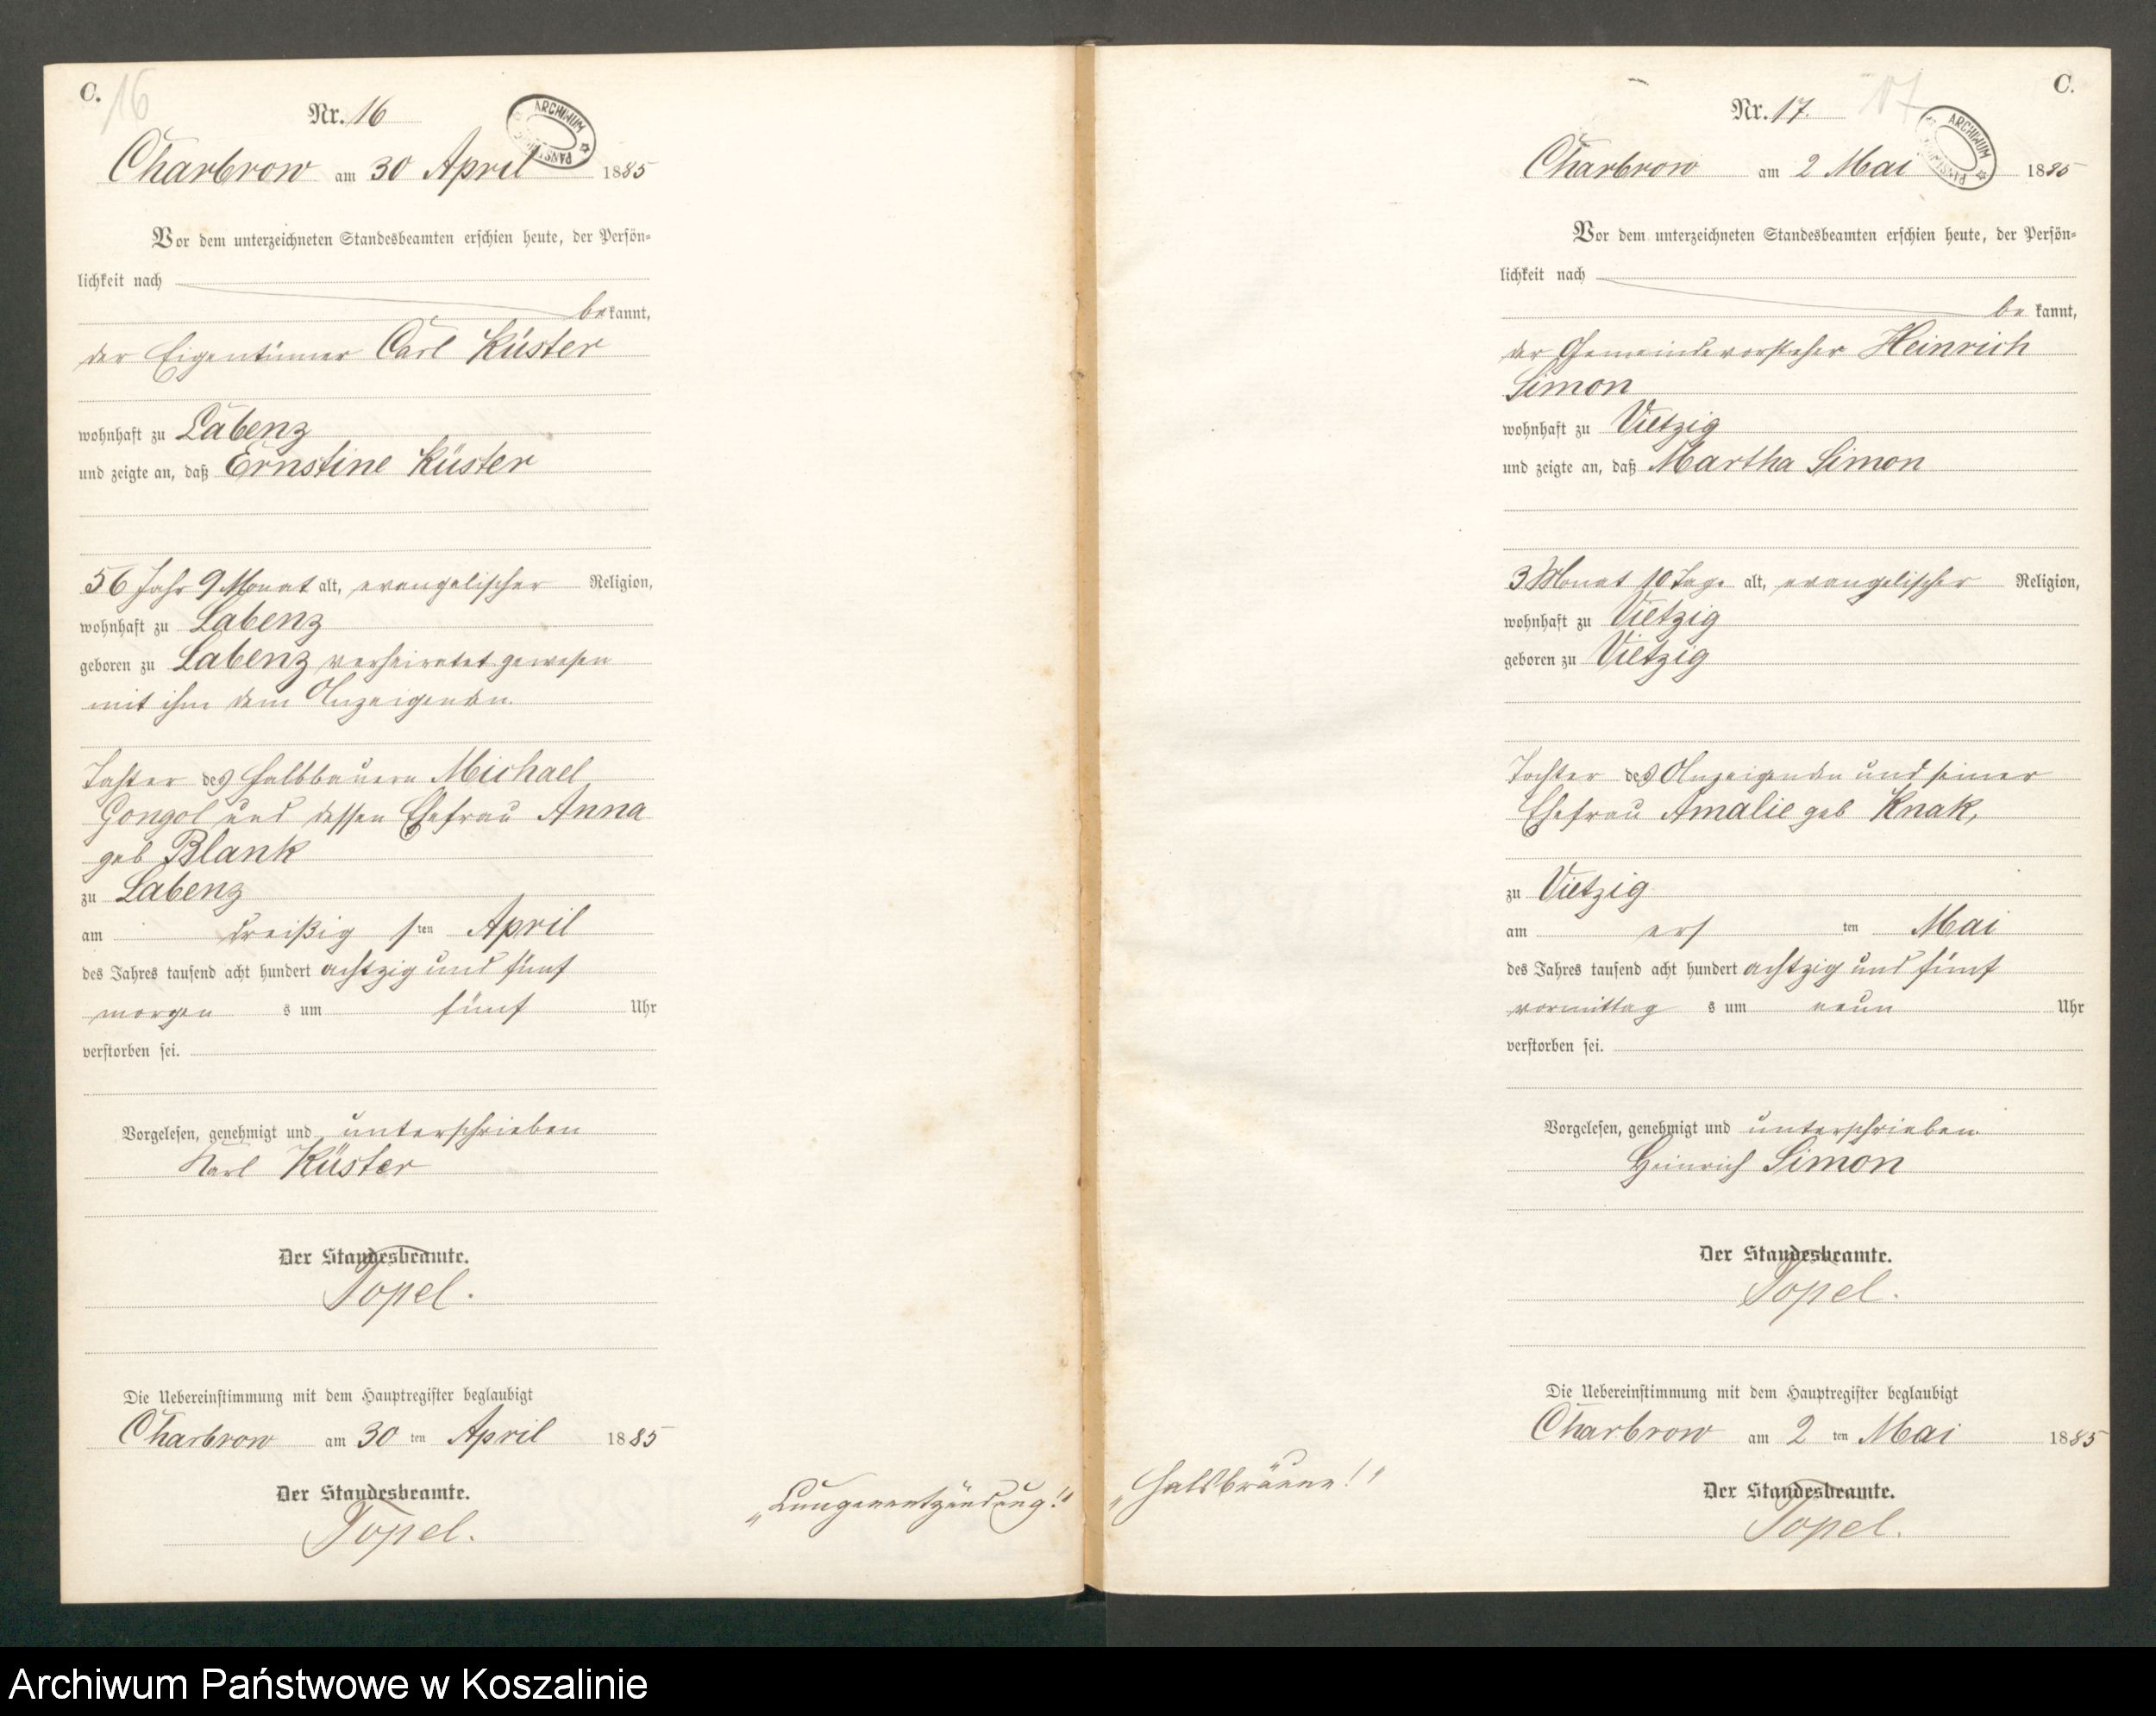 C.
16
Nr. 16
ARCHIWUM PAŃSTW
Charbrow am 30 April 1885
Vor dem unterzeichneten Standesbeamten erschien heute, der Persön=
lichkeit nach
bekannt,
der Eigentümer Carl Küster
wohnhaft zu Labenz
und zeigte an, daß Ernstine Küster
56 Jahr 9 Monat alt, evangelischer Religion,
wohnhaft zu Labenz
geboren zu Labenz verheiratet gewesen
mit ihm dem Anzeigenden.
Tochter des Halbbauern Michael
Gongol und dessen Ehefrau Anna
geb Blank
zu Labenz
am dreißig sten April
des Jahres tausend acht hundert achtzig und fünf
morgen s um fünf Uhr
verstorben sei.
Vorgelesen, genehmigt und unterschrieben
Karl Küster
Der Standesbeamte.
Topel.
Die Uebereinstimmung mit dem Hauptregister beglaubigt
Charbrow am 30 ten April 1885
Der Standesbeamte.
Topel.
„Lungenentzündung!"
C.
17
Nr. 17.
ARCHIWUM PAŃSTW
Charbrow am 2 Mai 1885
Vor dem unterzeichneten Standesbeamten erschien heute, der Persön=
lichkeit nach
be kannt,
der Gemeindevorsteher Heinrich
Simon
wohnhaft zu Vietzig
und zeigte an, daß Martha Simon
3 Monat 10 Tage alt, evangelischer Religion,
wohnhaft zu Vietzig
geboren zu Vietzig
Tochter des Anzeigenden und seiner
Ehefrau Amalie geb Knak,
zu Vietzig
am ers ten Mai
des Jahres tausend acht hundert achtzig und fünf
vormittag s um neun Uhr
verstorben sei.
Vorgelesen, genehmigt und unterschrieben
Heinrich Simon
Der Standesbeamte.
Topel.
Die Uebereinstimmung mit dem Hauptregister beglaubigt
Charbrow am 2 ten Mai 1885
Der Standesbeamte.
Topel.
„Halsbräune!"
Archiwum Państwowe w Koszalinie